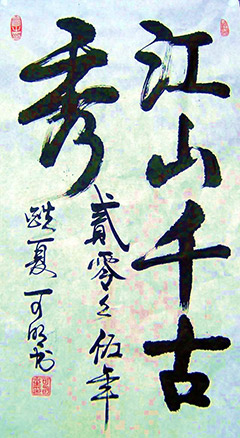 江山千古
秀
貳零々伍年
夏 可明书